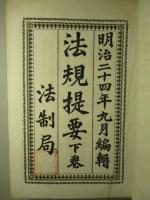 明治二十四年九月編輯
法規提要下卷
法制局